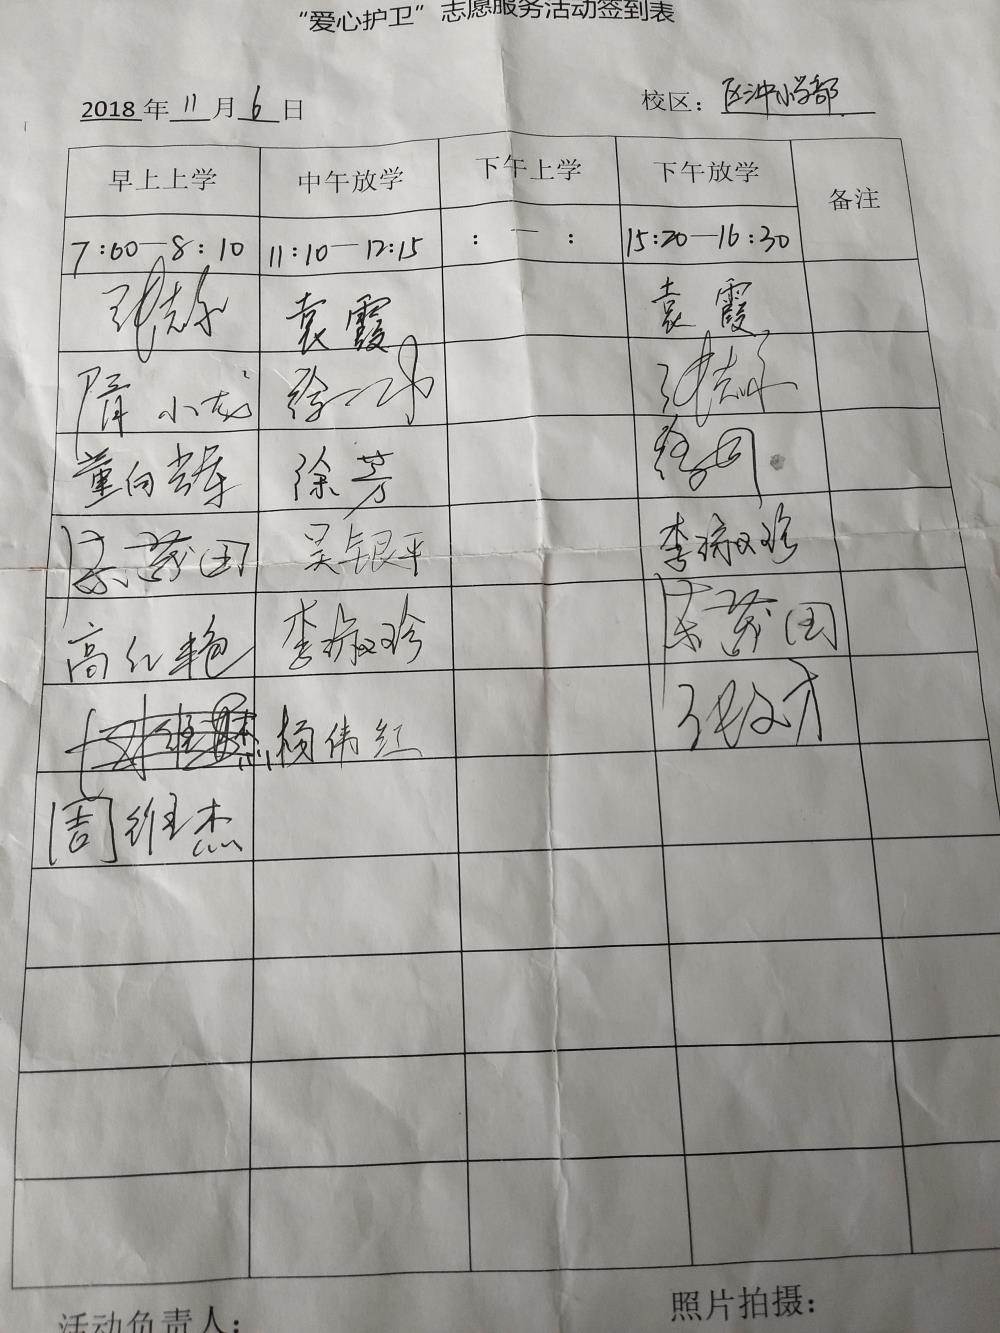 “爱心护卫”志愿服务活动签到表
2018年11月6日 校区：区冲小学部
早上上学 中午放学 下午上学 下午放学 备注
7:60—8:10 11:10—12:15 : — : 15:20—16:30
袁霞 袁霞
隋小龙 徐一
董向 徐芳
茂国 吴银平 李淑珍
高红艳 李淑珍 茂国
杨伟红 张文才
周维杰
活动负责人： 照片拍摄：